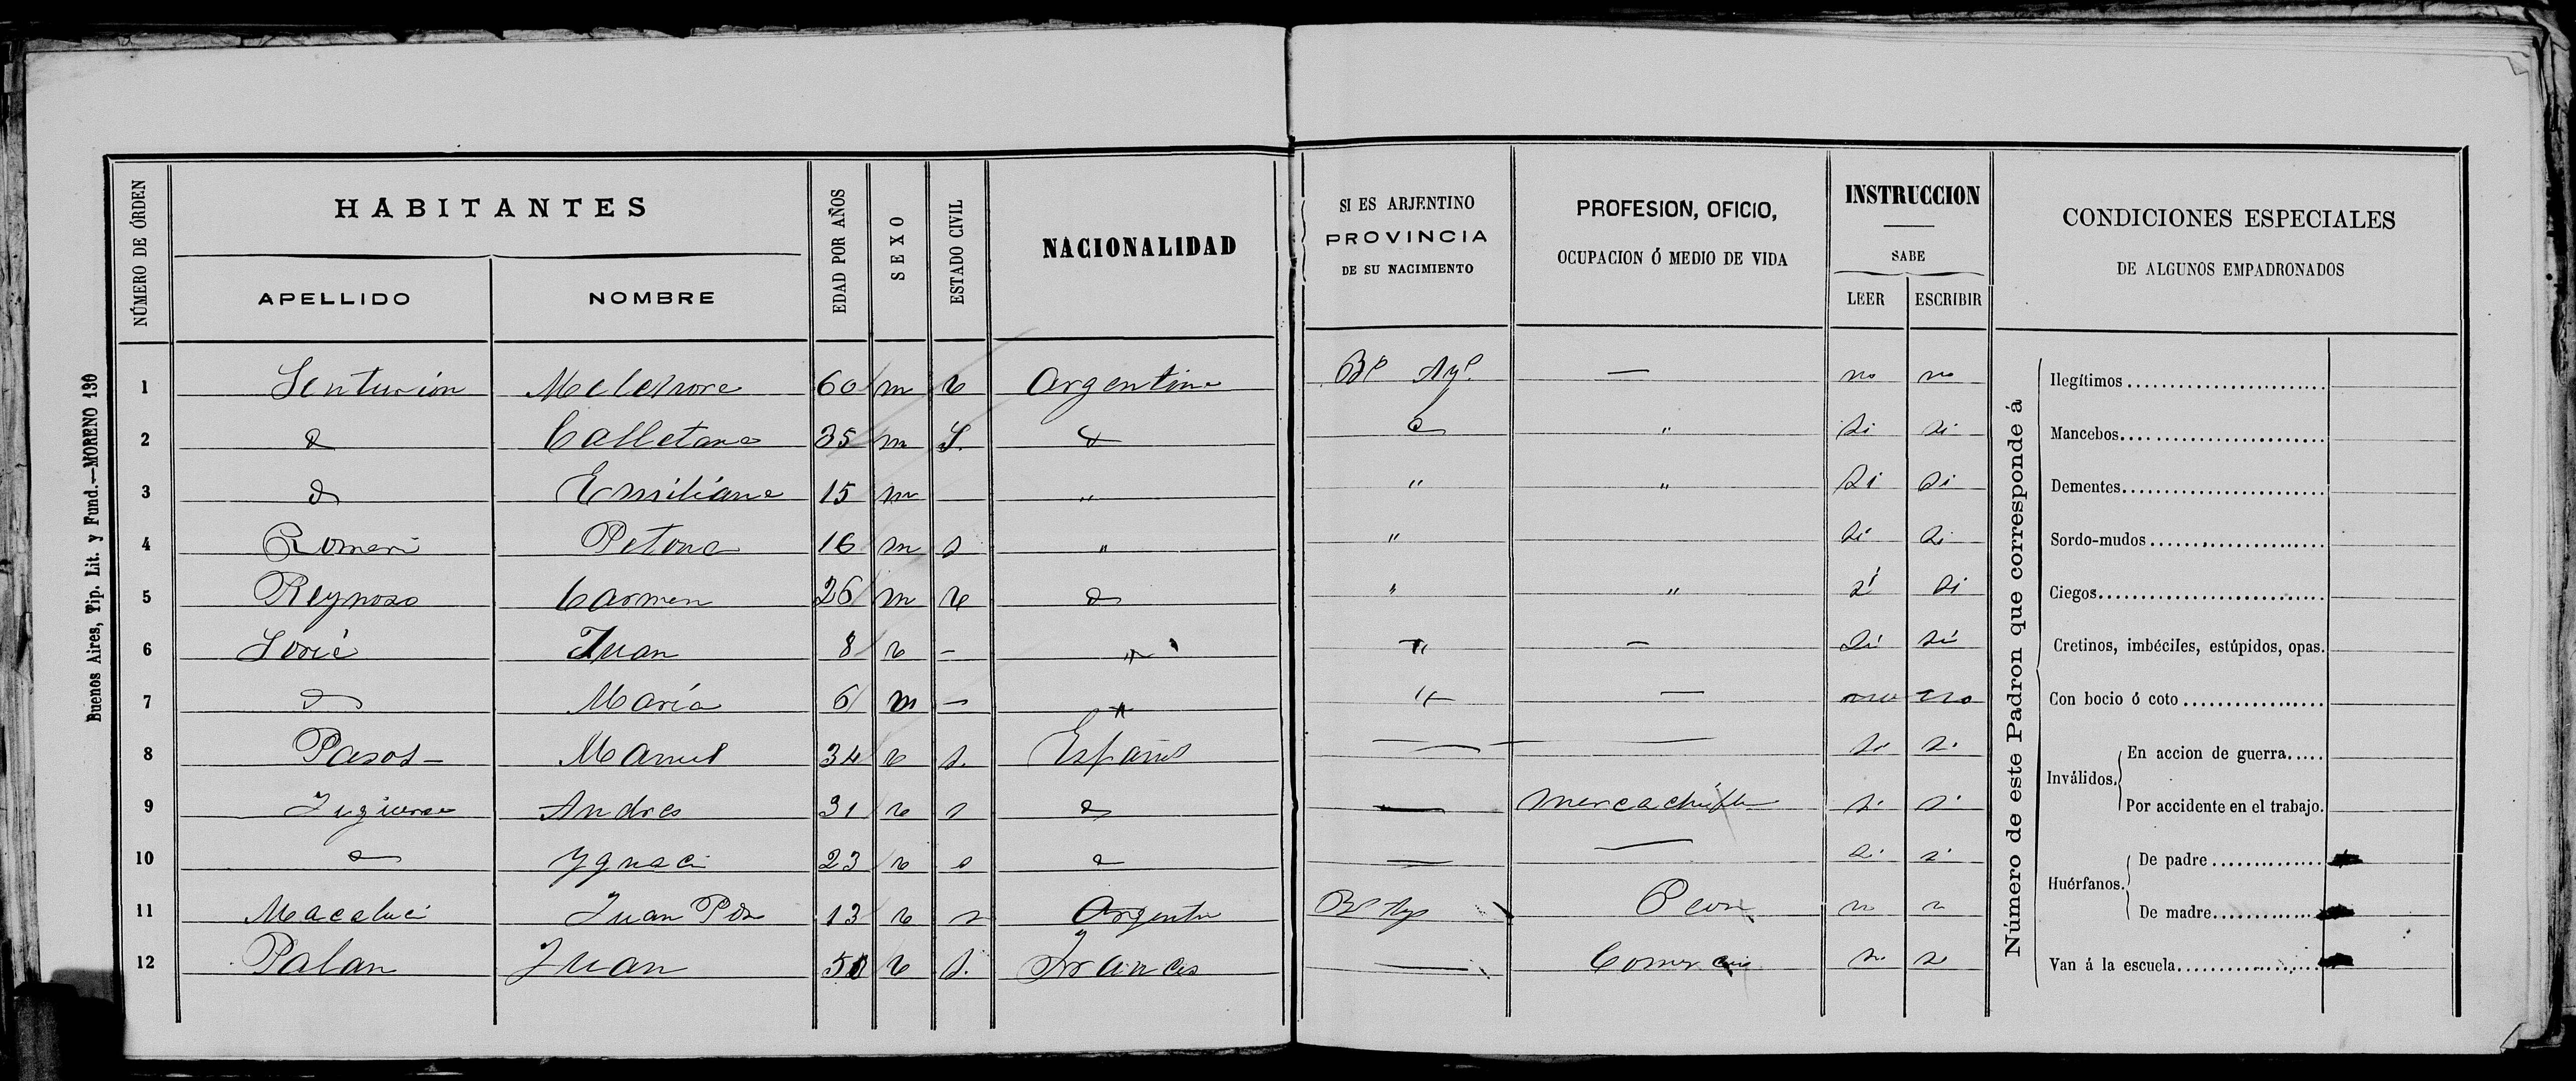 Buenos Aires, Tip. Lit. y Fund.—MORENO 130
NÚMERO DE ÓRDEN
HABITANTES
APELLIDO NOMBRE
EDAD POR AÑOS
SEXO
ESTADO CIVIL
NACIONALIDAD
SI ES ARJENTINO
PROVINCIA
DE SU NACIMIENTO
PROFESION, OFICIO,
OCUPACION Ó MEDIO DE VIDA
INSTRUCCION
SABE
LEER ESCRIBIR
CONDICIONES ESPECIALES
DE ALGUNOS EMPADRONADOS
1 Senturión 60 m v Argentina Bs Ays — no no
2 " Calletana 35 m S. " " " si si
3 " Emiliana 15 m " " " si si
4 Romeri Petona 16 m s " " si si
5 Reynoso Carmen 26 m v " " " si si
6 Sorié Juan 8 v — " " — si si
7 " María 6 m — " " — no no
8 Pasos - Manuel 34 v s. Español — — si si
9 Andres 31 v s " — mercachifle si si
10 " Ygnaci 23 v s " — — si si
11 Juan 13 v s Argentin Bs Ays Peon n n
12 Palan Juan 50 v s. Frances — Comercio si si
Número de este Padron que corresponde á
Ilegítimos
Mancebos
Dementes
Sordo-mudos
Ciegos
Cretinos, imbéciles, estúpidos, opas.
Con bocio ó coto
Inválidos. En accion de guerra
Por accidente en el trabajo.
Huérfanos. De padre
De madre
Van á la escuela